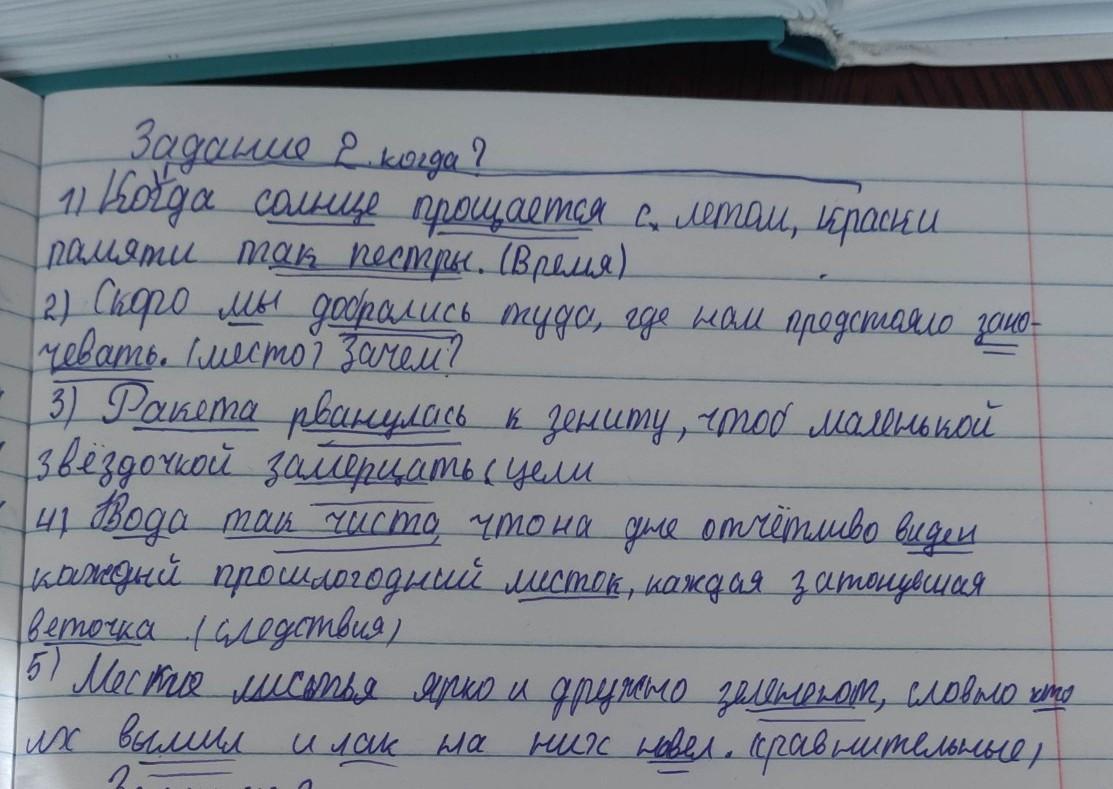 Задание 2. когда?
1) Когда солнце прощается с летом, краски
памяти так пестры. (Время)
2) Скоро мы добрались туда, где нам предстояло зано-
чевать. (место) Зачем?
3) Ракета рванулась к зениту, чтоб маленькой
звёздочкой замерцать (цели
4) Вода так чиста, что на дне отчётливо виден
каждый прошлогодний листок, каждая затонувшая
веточка (следствия)
5) листья ярко и дружно словно кто
их вымыл и лак на них навел. (равнительные)